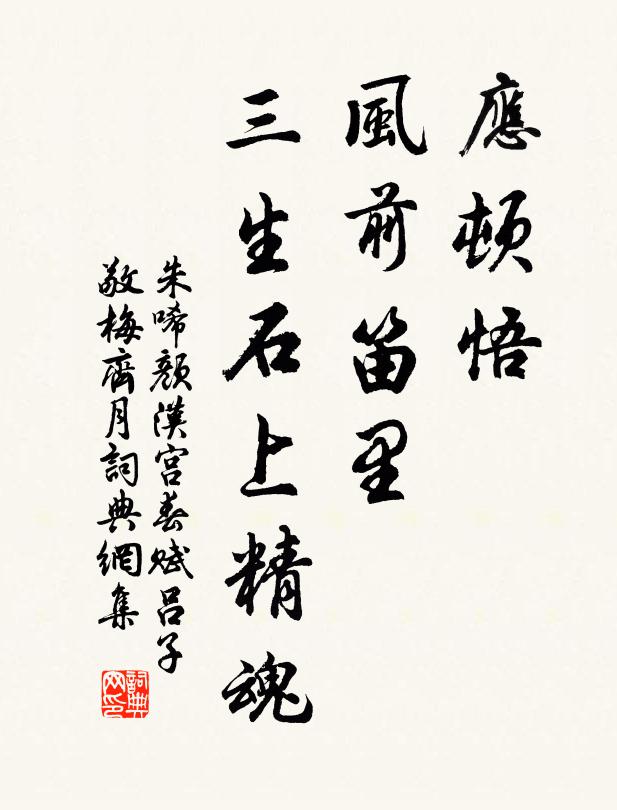 應頓悟
風前笛里
三生石上精魂
朱唏顏漢宮春賦呂子
敬梅齋月詞典網集
詞典网印